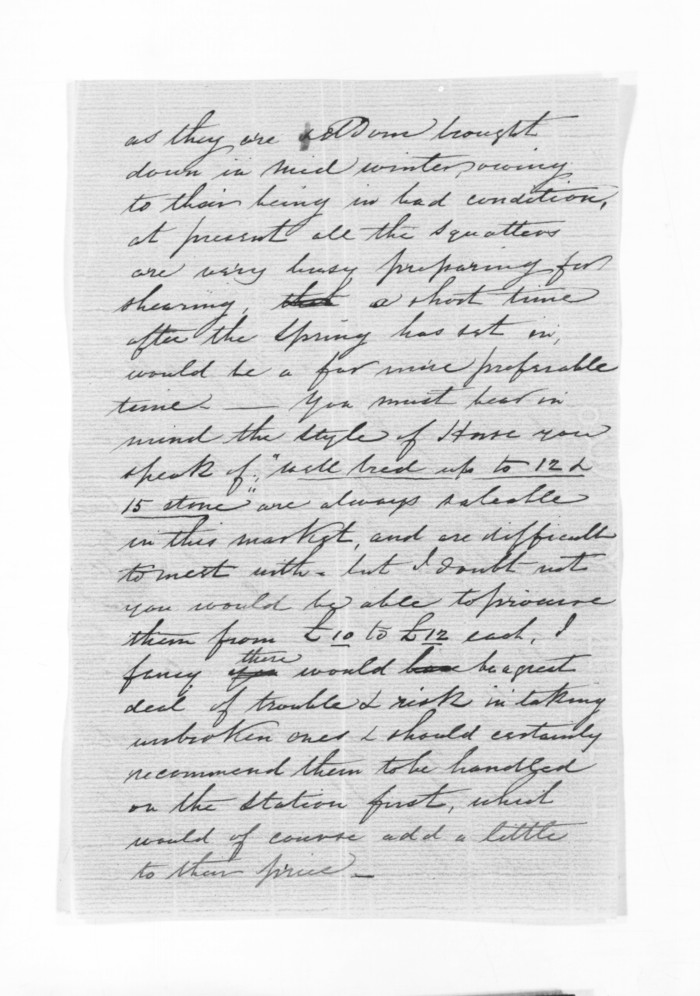 as they are seldom brought
down in mid winter, owing
to their being in bad condition,
at present all the squatters
are very busy preparing for
shearing, that a short time
after the Spring has set in,
would be a far more preferable
time. — You must bear in
mind the style of Horse you
speak of, "well bred up to 12 &
15 stone" are always saleable
in this market, and are difficult
to meet with - but I doubt not
you would be able to procure
them from £10 to £12 each, I
fancy there would be a great
deal of trouble & risk in taking
unbroken ones & should certainly
recommend them to be handled
on the Station first, which
would of course add a little
to their price. —